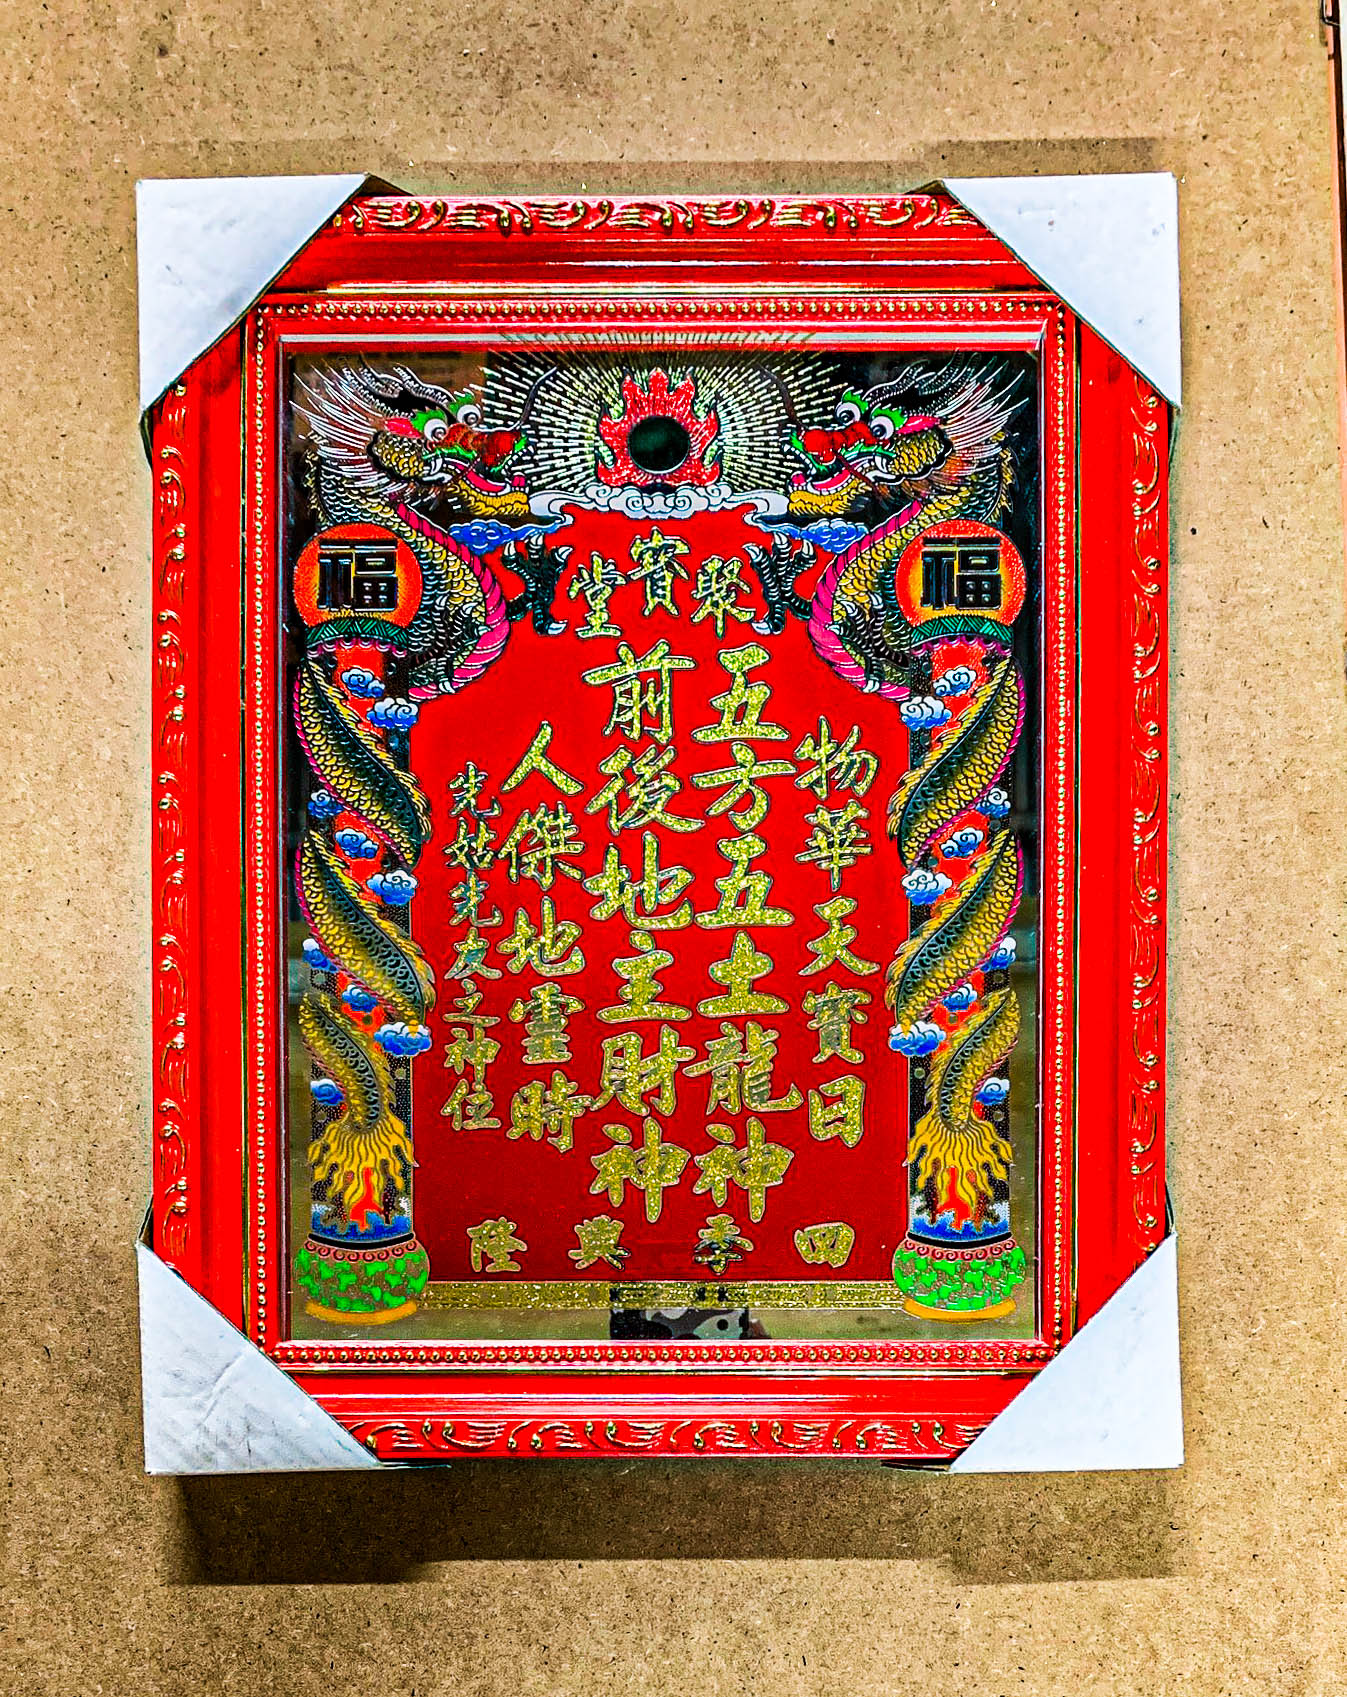 福
福
聚寶堂
物華天寶日
五方五土龍神
前後地主財神
人傑地靈時
先姑先友之神位
四季興隆